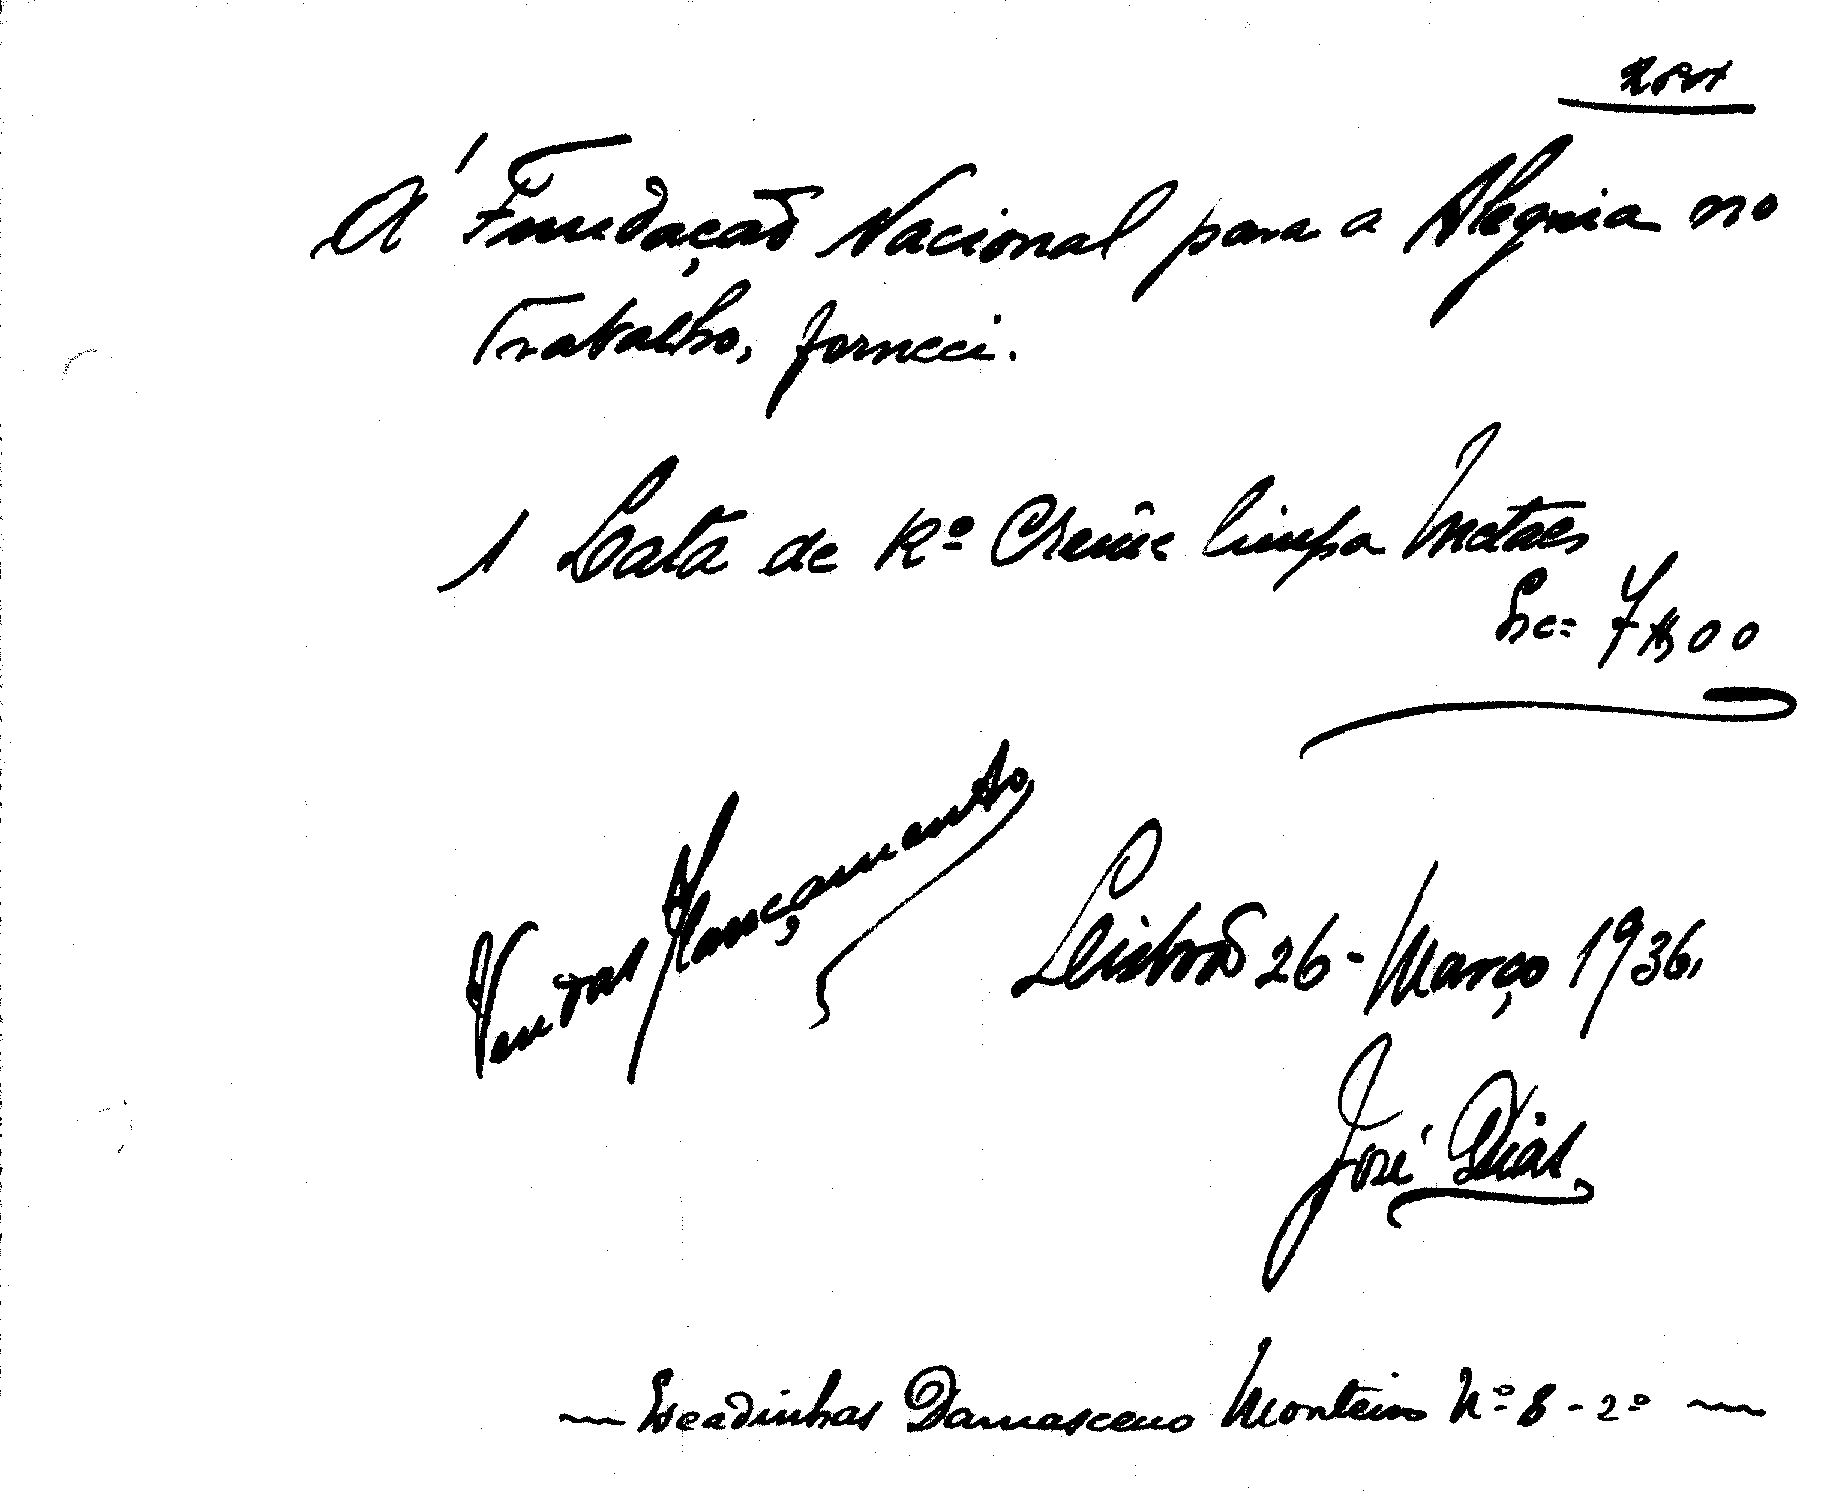 Á Fundação Nacional para a Alegria no
Trabalho, forneci.
1 Lata de Kº Crême limpa Metaes
Esc= 7$00
Lisbôa 26 - Março 1936.
José Dias
— Escadinhas Damasceno Monteiro Nº 8 - 2º —